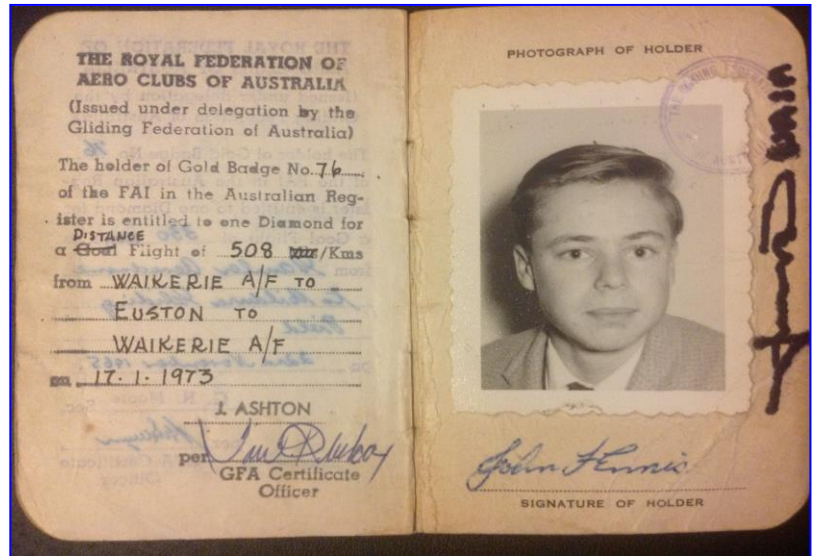 THE ROYAL FEDERATION OF
AERO CLUBS OF AUSTRALIA
(Issued under delegation by the
Gliding Federation of Australia)
The holder of Gold Badge No. 76
of the FAI in the Australian Reg-
ister is entitled to one Diamond for
DISTANCE
a Goal Flight of 508 /Kms
from WAIKERIE A/F TO
EUSTON TO
WAIKERIE A/F
on 17.1.1973
J. ASHTON
per
GFA Certificate
Officer
PHOTOGRAPH OF HOLDER
John
SIGNATURE OF HOLDER